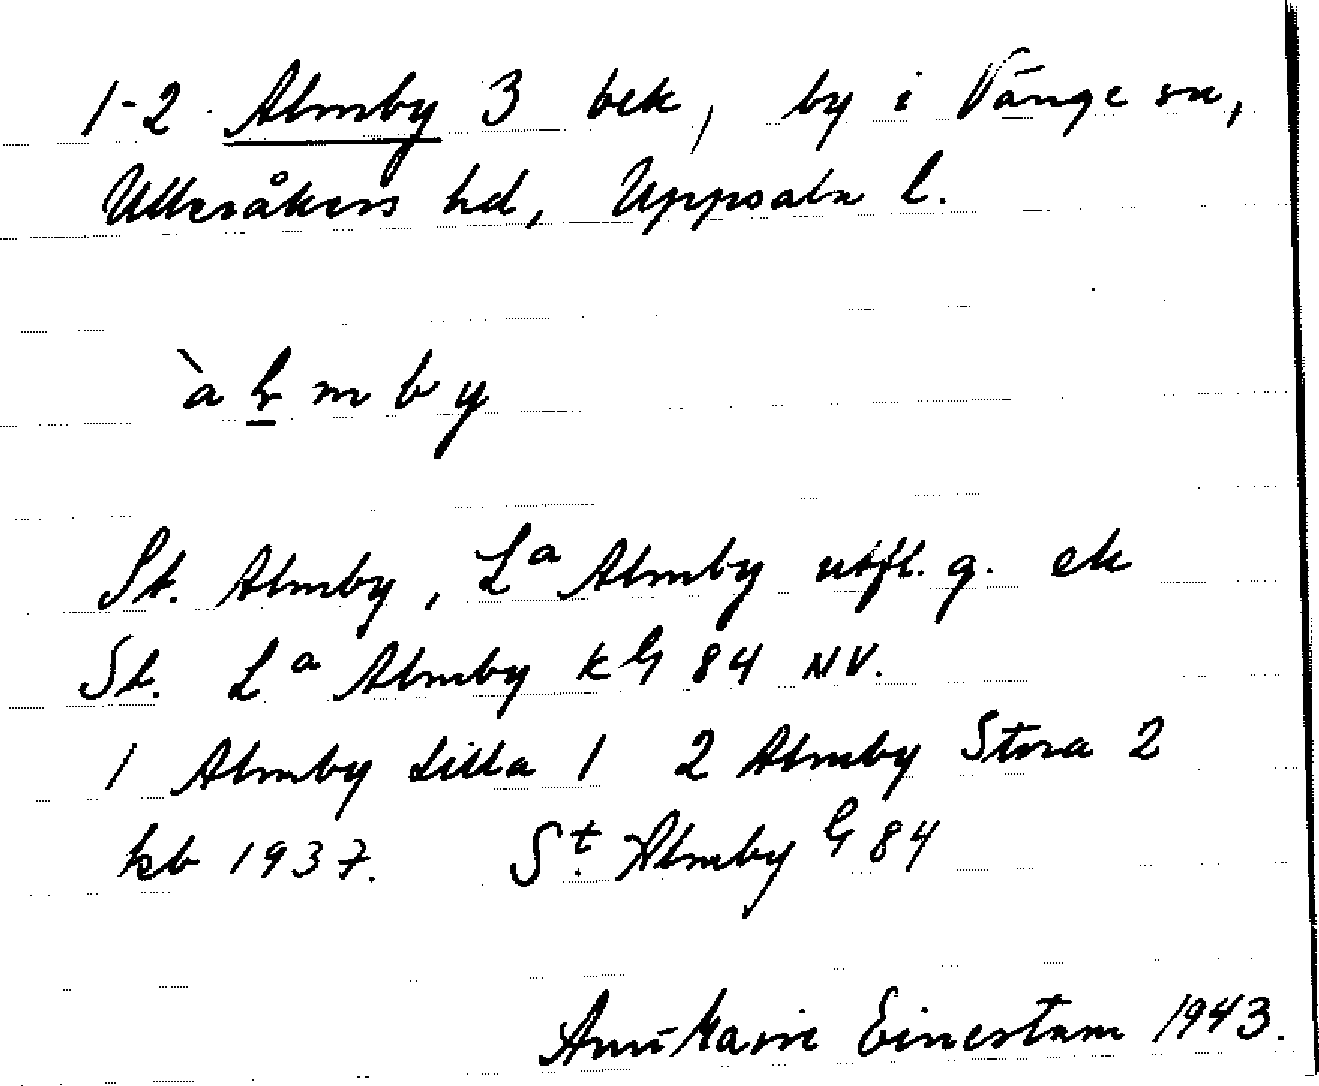 1-2 Almby 3 bek, by i Vänge sn,
Ulleråkers hd, Uppsala l.
àlmby
St. Almby, Lª Almby utfl. g. ek
St. Lª Almby k G 84 NV.
1 Almby Lilla 1 2 Almby Stora 2
kb 1937. St. Almby G 84
Ann-Marie Einerstam 1943.